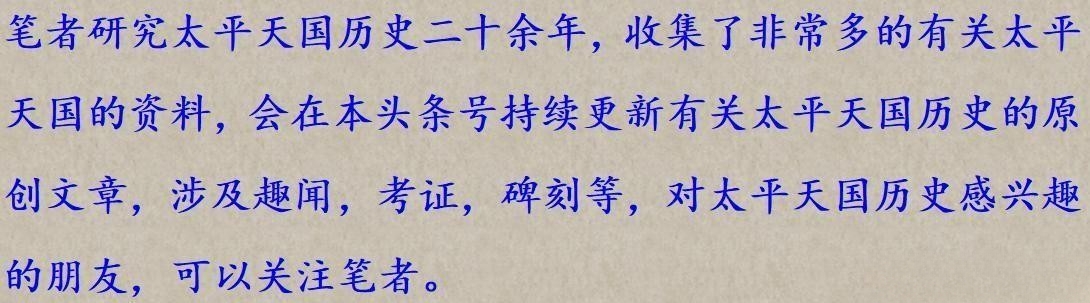 笔者研究太平天国历史二十余年，收集了非常多的有关太平
天国的资料，会在本头条号持续更新有关太平天国历史的原
创文章，涉及趣闻，考证，碑刻等，对太平天国历史感兴趣
的朋友，可以关注笔者。